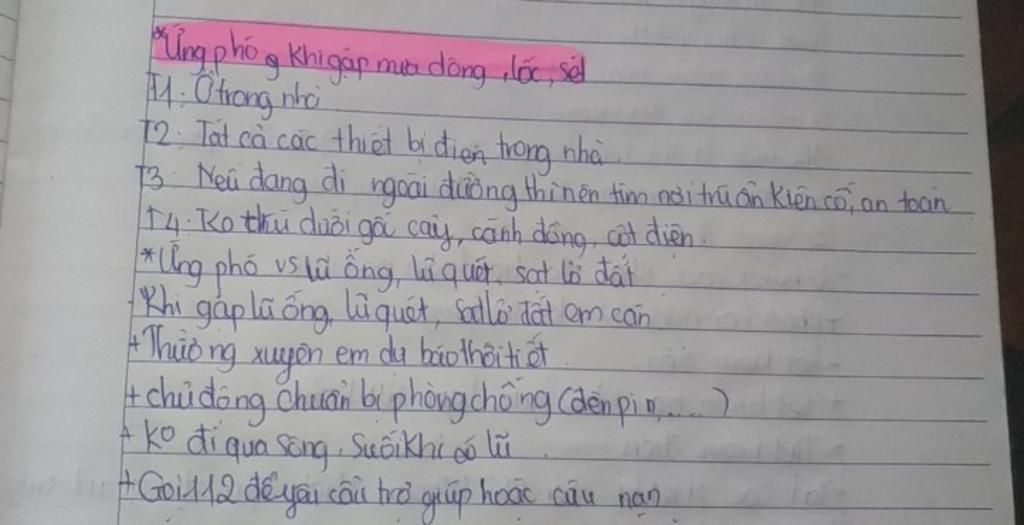 *Ứng phó g khi gặp mưa dông, lốc, sét
T1: Ở trong nhà
T2: Tắt cả các thiết bị điện trong nhà
T3: Nếu đang đi ngoài đường thì nên tìm nơi trú ẩn kiên cố, an toàn
T4: Ko thú dưới gốc cây, cánh đồng, cột điện.
*Ứng phó vs lũ ống, lũ quét, sạt lỡ đất
Khi gặp lũ ống, lũ quét, sạt lỡ đất em cần
+ Thường xuyên em dự báo thời tiết.
+ chủ động chuẩn bị phòng chống (đèn pin,.....)
+ Ko đi qua sông, suối khi có lũ.
+ Gọi 112 để yêu cầu trợ giúp hoặc cứu nạn